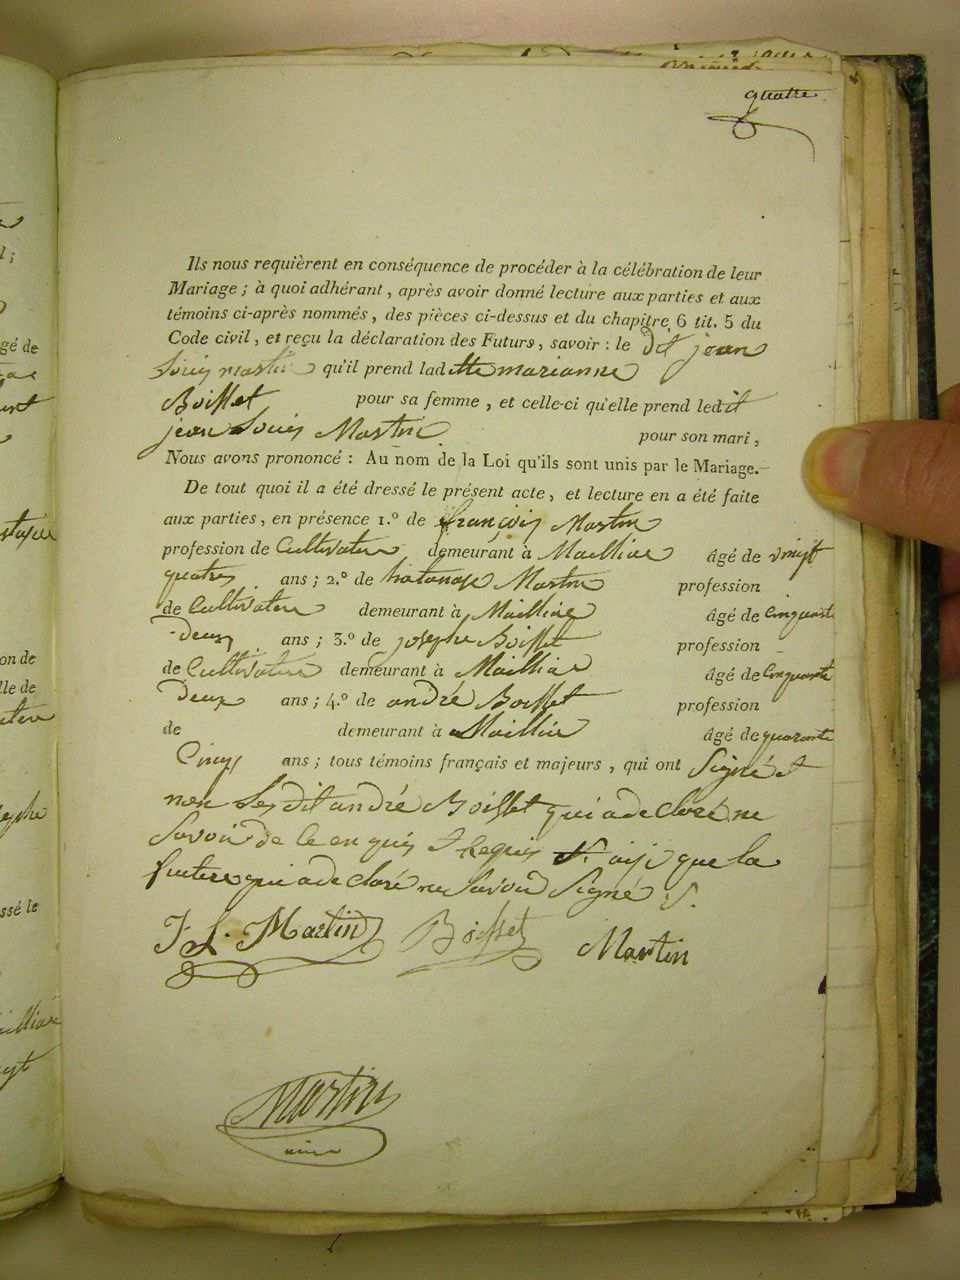 quatre
Ils nous requièrent en conséquence de procéder à la célébration de leur
Mariage ; à quoi adhérant, après avoir donné lecture aux parties et aux
témoins ci-après nommés, des pièces ci-dessus et du chapitre 6 tit. 5 du
Code civil, et reçu la déclaration des Futurs, savoir : le dit jean
Louis martin qu'il prend ladtte marianne
Boisset pour sa femme, et celle-ci qu'elle prend ledit
jean Louis Martin pour son mari,
Nous avons prononcé : Au nom de la Loi qu'ils sont unis par le Mariage.
De tout quoi il a été dressé le présent acte, et lecture en a été faite
aux parties, en présence 1.º de françois Martin
profession de Cultivateur demeurant à Mailliac âgé de vingt
quatre ans ; 2.º de Martin profession
de Cultivateur demeurant à Mailliac âgé de cinquante
Deux ans ; 3.º de joseph Boisset profession
de Cultivateur demeurant à Mailliac âgé de Cinquante
Deux ans ; 4.º de andré Boisset profession
de demeurant à Mailliac âgé de quarante
Cinq ans ; tous témoins français et majeurs, qui ont Signé et
non Ledit andré Boisset qui a declaré ne
Savoir de ce enquis et Requis ainsi que la
future qui a declaré ne Savoir Signé
J L. Martin Boisset Martin
Martin